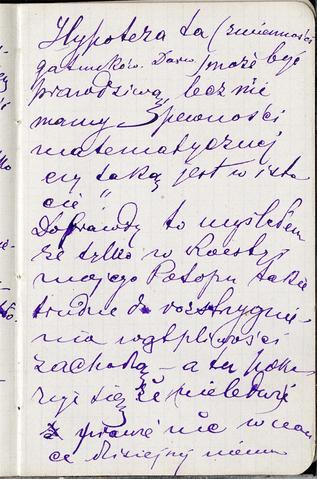 Hypoteza ta (zmienności
gatunków. Darw) może być
prawdziwą, lecz nie
mamy pewności
matematycznej
czy taką jest w isto
cie"
Doprawdy to myślałem
że tylko w
mojego Potopu takie
trudne do rozstrzygnie-
nia wątpliwości
zachodzą — a tu poka-
zuje się że nieledwie
że prawie nic w nau
ce dzisiejszej niema